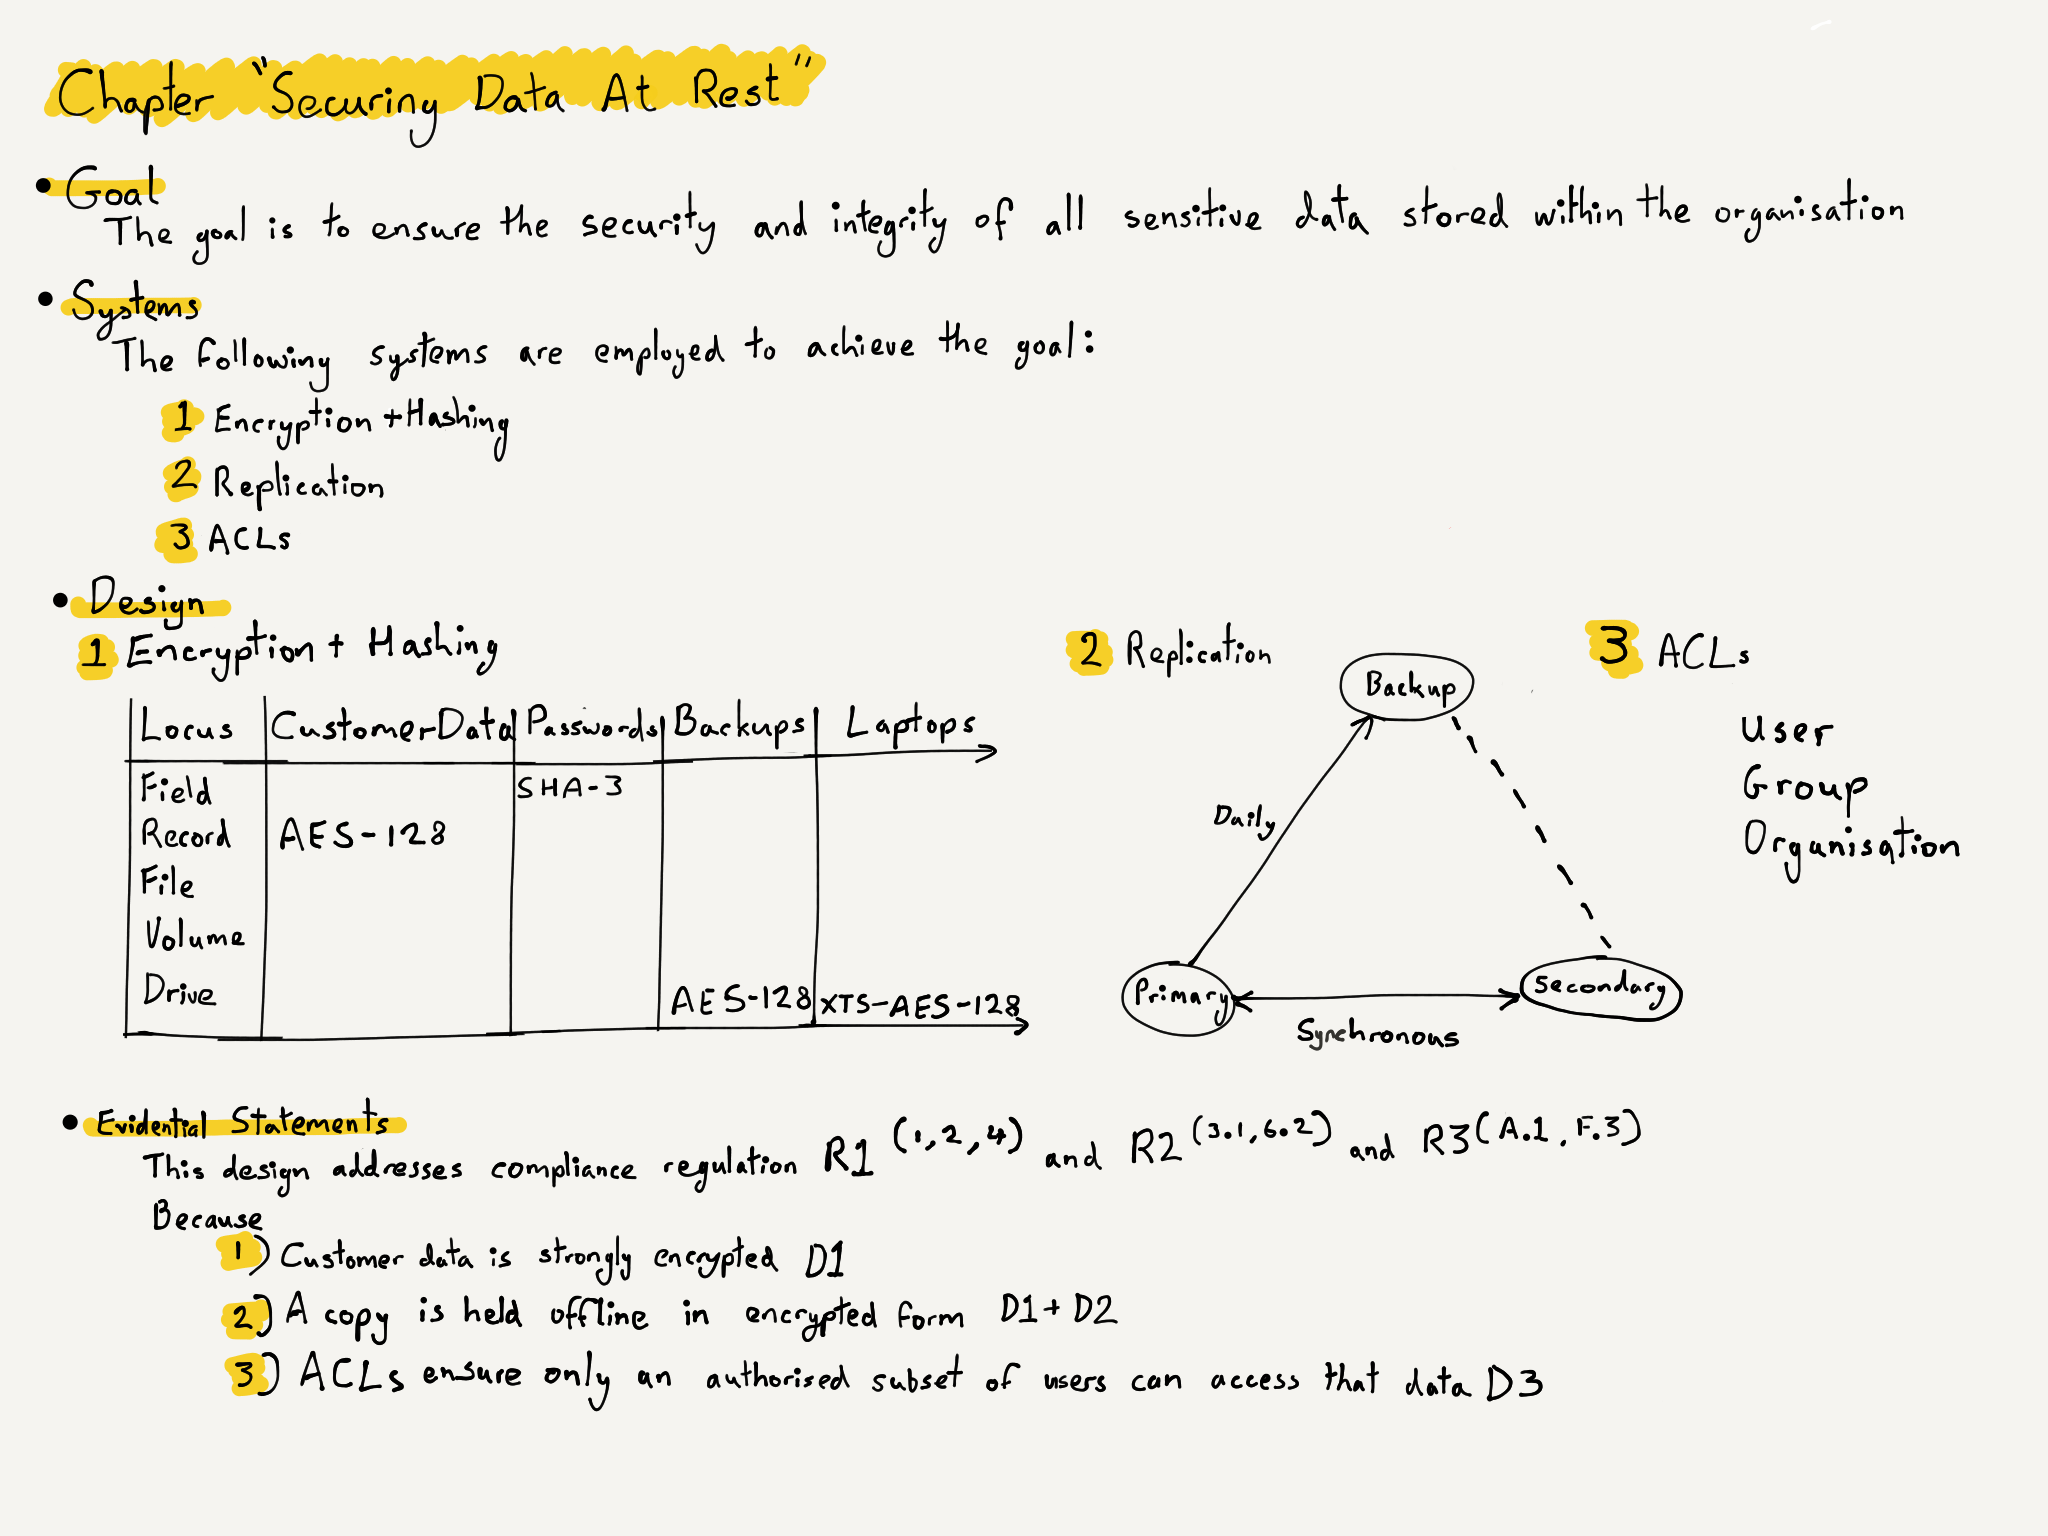 Chapter "Securing Data At Rest"
• Goal
The goal is to ensure the security and integrity of all sensitive data stored within the organisation
• Systems
The following systems are employed to achieve the goal:
1 Encryption + Hashing
2 Replication
3 ACLs
• Design
1 Encryption + Hashing
Locus CustomerData Passwords Backups Laptops
Field SHA-3
Record AES-128
File
Volume
Drive AES-128 XTS-AES-128
2 Replication
Backup
Daily
Primary
Secondary
Synchronous
3 ACLs
User
Group
Organisation
• Evidential Statements
This design addresses compliance regulation R1 (1,2,4) and R2 (3.1,6.2) and R3 (A.1, F.3)
Because
1) Customer data is strongly encrypted D1
2) A copy is held offline in encrypted form D1+D2
3) ACLs ensure only an authorised subset of users can access that data D3